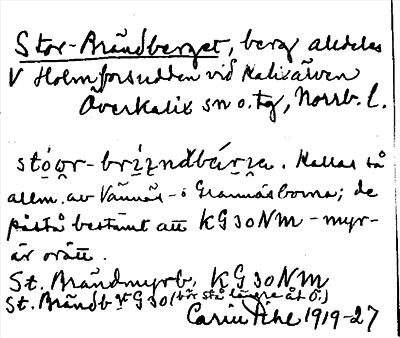 Stor-Brändberget, berg alldeles
V Holmforsudden vid Kalixälven
Överkalix sn o. tg, Norrb. l.
Kallas så
allm. av Vännäs- o Grannäsborna; de
påstå bestämt att KG30NM-myr-
är orätt.
St. Brändmyrb. KG30NM
St. Brändb:gt G30 (bör stå längre åt Ö.)
Carin Pihl 1919-27